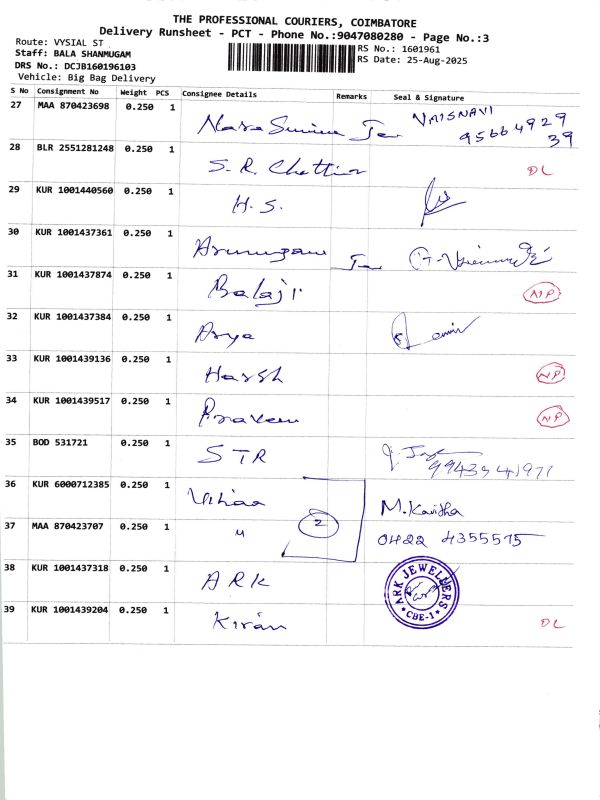 THE PROFESSIONAL COURIERS, COIMBATORE
Delivery Runsheet - PCT - Phone No.:9047080280 - Page No.:3
Route: VYSIAL ST
Staff: BALA SHANMUGAM
DRS No.: DCJB160196103
Vehicle: Big Bag Delivery
RS No.: 1601961
RS Date: 25-Aug-2025
S No Consignment No Weight PCS Consignee Details Remarks Seal & Signature
27 MAA 870423698 0.250 1 VAISNAVI
95664929
39
28 BLR 2551281248 0.250 1 S.R. Chettiar DL
29 KUR 1001440560 0.250 1 H.S.
30 KUR 1001437361 0.250 1 Arumugam
31 KUR 1001437874 0.250 1 Balaji NP
32 KUR 1001437384 0.250 1 Arya
33 KUR 1001439136 0.250 1 Harsh NP
34 KUR 1001439517 0.250 1 Praveen NP
35 BOD 531721 0.250 1 STR
9943941971
36 KUR 6000712385 0.250 1 M.Kavitha
37 MAA 870423707 0.250 1 " 2 0422 4355575
38 KUR 1001437318 0.250 1 ARK ARK JEWELLERS CBE-1
39 KUR 1001439204 0.250 1 Kiran DL